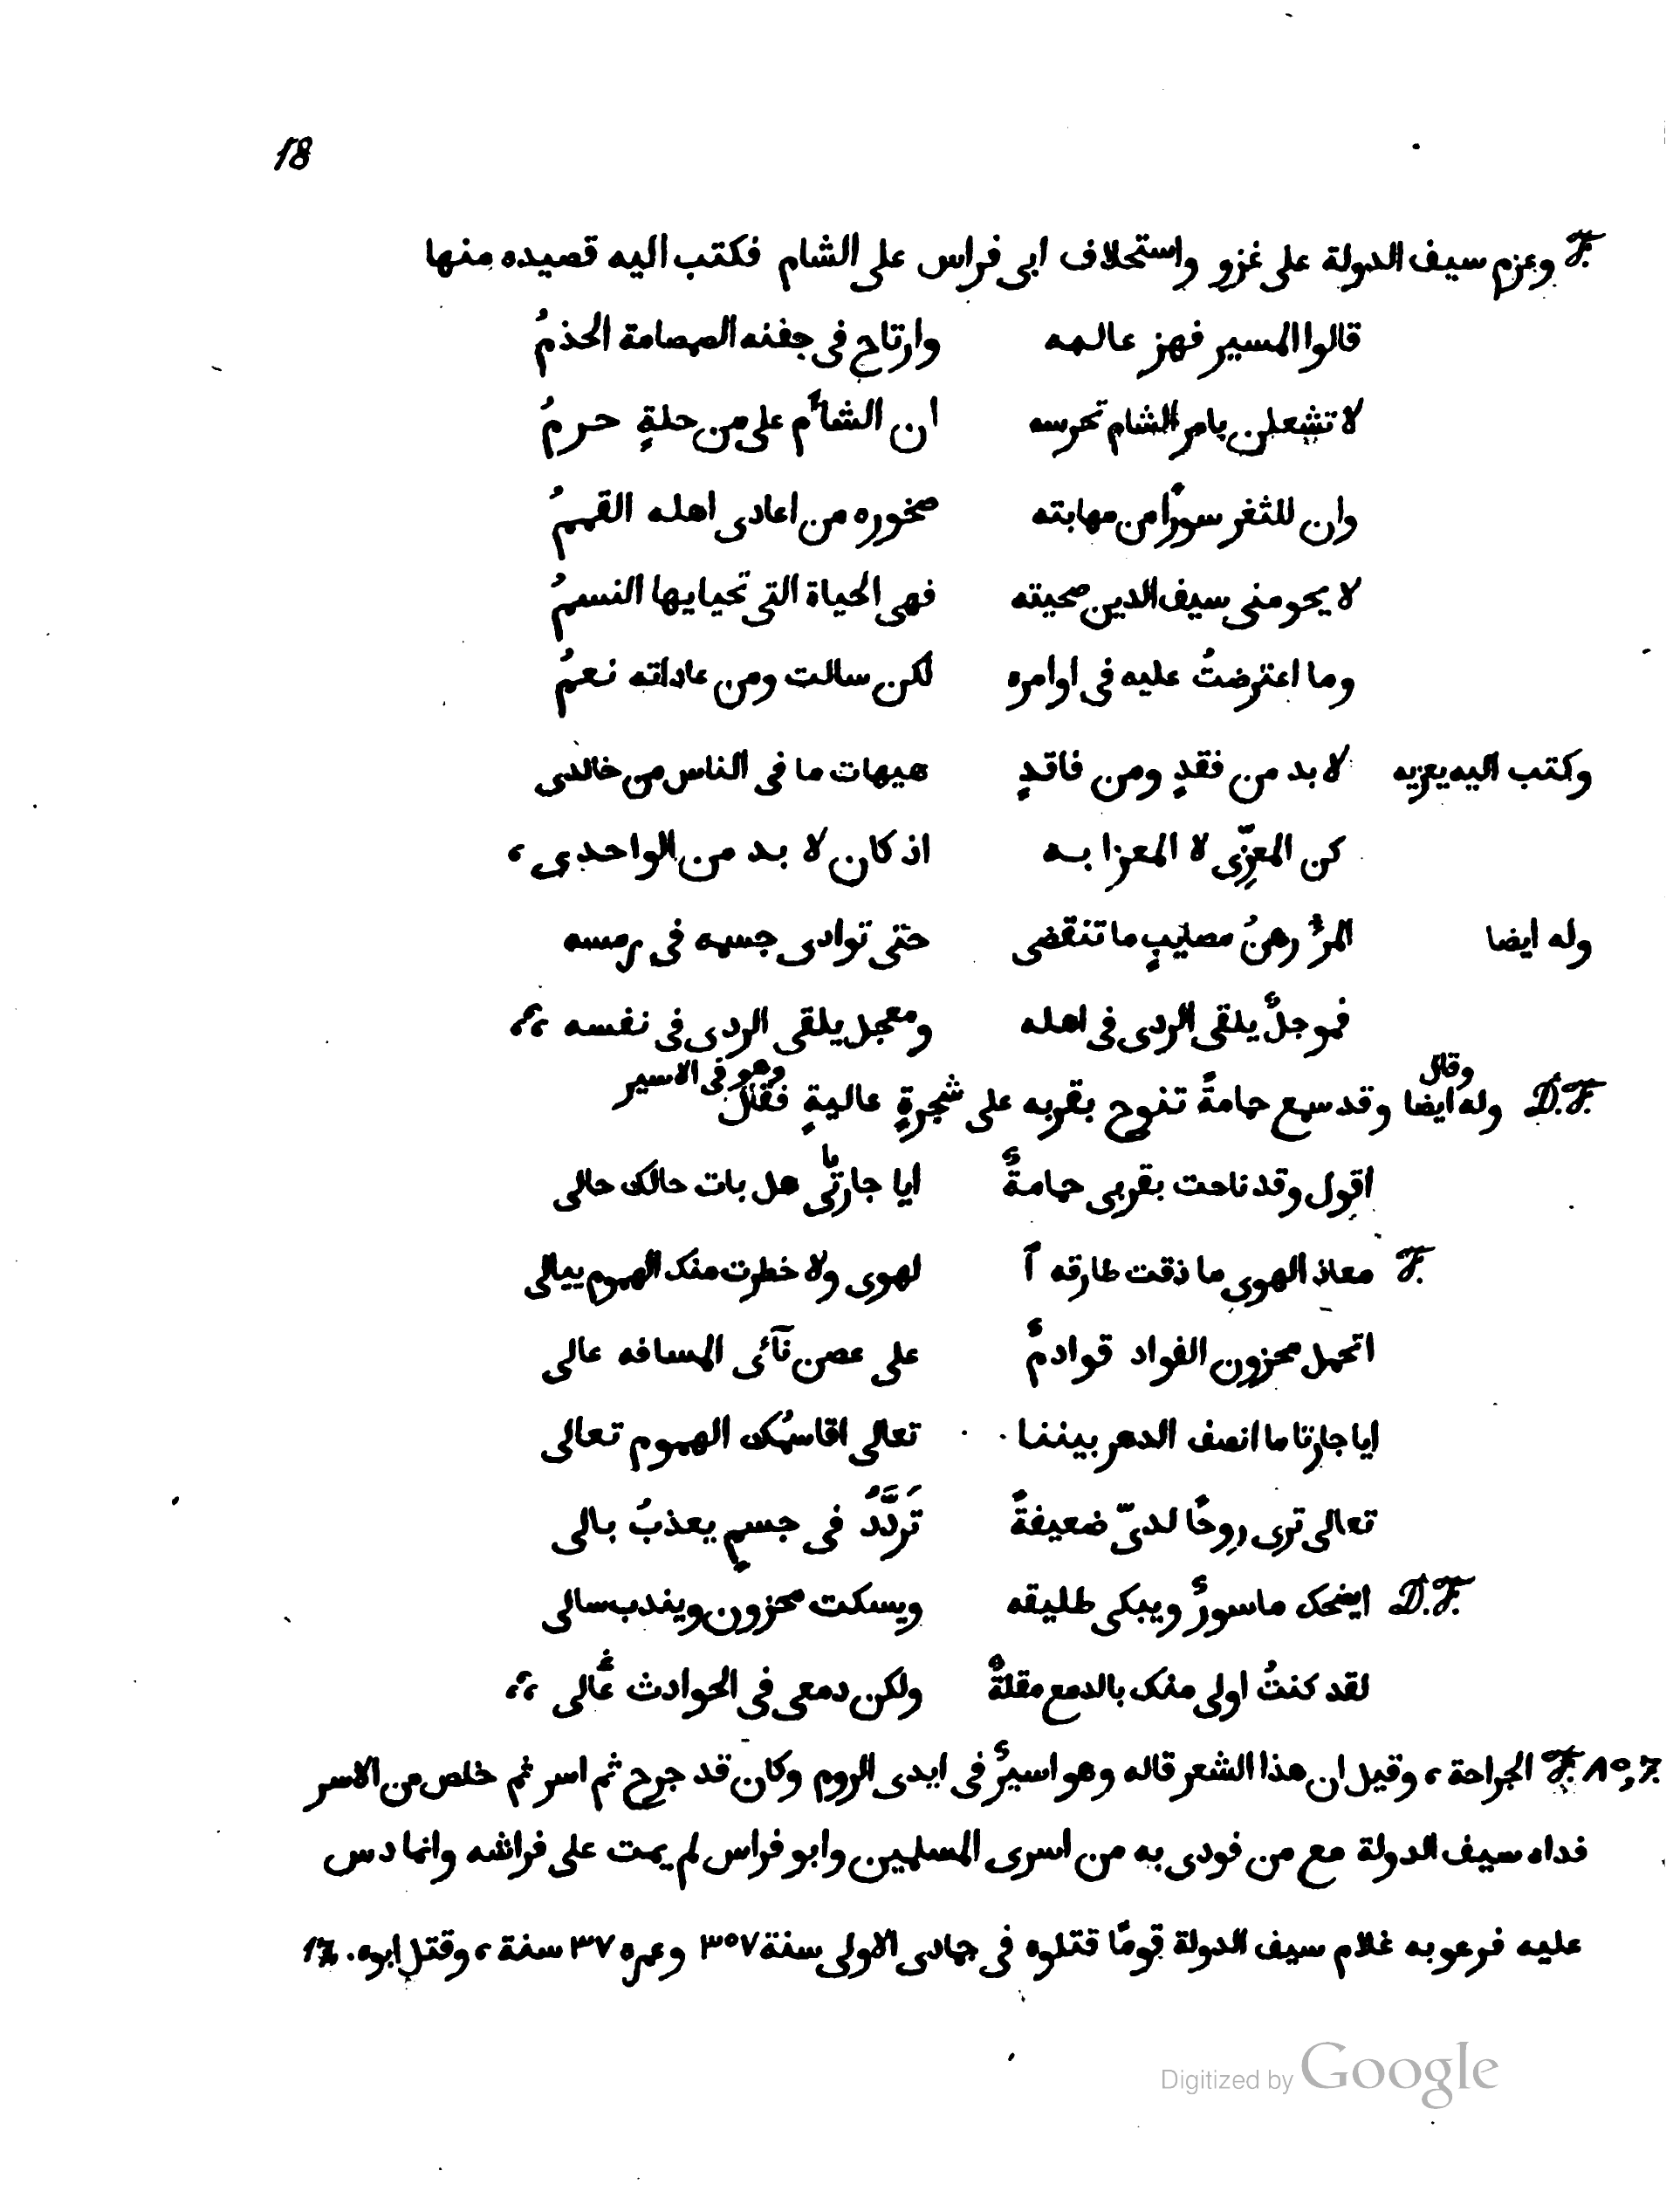 18
F. وعزم سيف الدولة على غزو واستخلاف ابى فراس على الشام فكتب اليه قصيده منها
قالوا المسير فهز عالمه وارتاح فى جفنه الصمصامة الخذمُ
لا تشعلن بامر الشام تحرسه ان الشأم على من حلةٍ حرمُ
وان للثغر سورًا من مهابته صخوره من اعادى اهله القممُ
لا يحومنى سيف الدين صحيته فهى الحياة التى تحيا بها النسمُ
وما اعترضتُ عليه فى اوامره لكن سالت ومن عاداته نعمُ
وكتب اليه يعزيه لا بد من فقدٍ ومن فاقدٍ هيهات ما فى الناس من خالدى
كن المعزّى لا المعزا به اذ كان لا بد من الواحدى ،
وله ايضا المرؤ رهنُ مصايبٍ ما تنقضى حتى توادى جسمه فى رمسه
فموجلٌ يلقى الردى فى اهله ومعجل يلقى الردى فى نفسه ،،
D.F. وله ايضا وقال وقد سمع حمامةً تنوح بقربه على شجرةٍ عاليةٍ فقال وهو فى الاسير
اقول وقد ناحت بقربى حمامةٌ ايا جارتى تا هل بات حالك حالى
F. معاذ الهوى ما ذقت طارقه آ لهوى ولا خطرت منك الهموم ببالى
اتحمل محزون الفواد قوادمٌ على عصن نآئى المسافه عالى
ايا جارتا ما انصف الدهر بيننا تعالى اقاسمُك الهموم تعالى
تعالى ترى روحًا لدىّ ضعيفةً تَردَّدُ فى جسمٍ يعذبُ بالى
D.F. ايضحك ماسورٌ ويبكى طليقه ويسكت محزون ويندب سالى
لقد كنتُ اولى منك بالدمع مقلةً ولكن دمعى فى الحوادث غَالى ،،
F. ١٥,7. الجراحة ، وقيل ان هذا الشعر قاله وهو اسيرٌ فى ايدى الروم وكان قد جرح ثم اسر ثم خلص من الاسر
فداه سيف الدولة مع من فودى به من اسرى المسلمين وابو فراس لم يمت على فراشه وانما دس
عليه فرعوبه غلام سيف الدولة قومًا قتلوه فى جمادى الاولى سنة ٣٥٧ وعمره ٣٧ سنة ، وقتل ابوه .
Digitized by Google